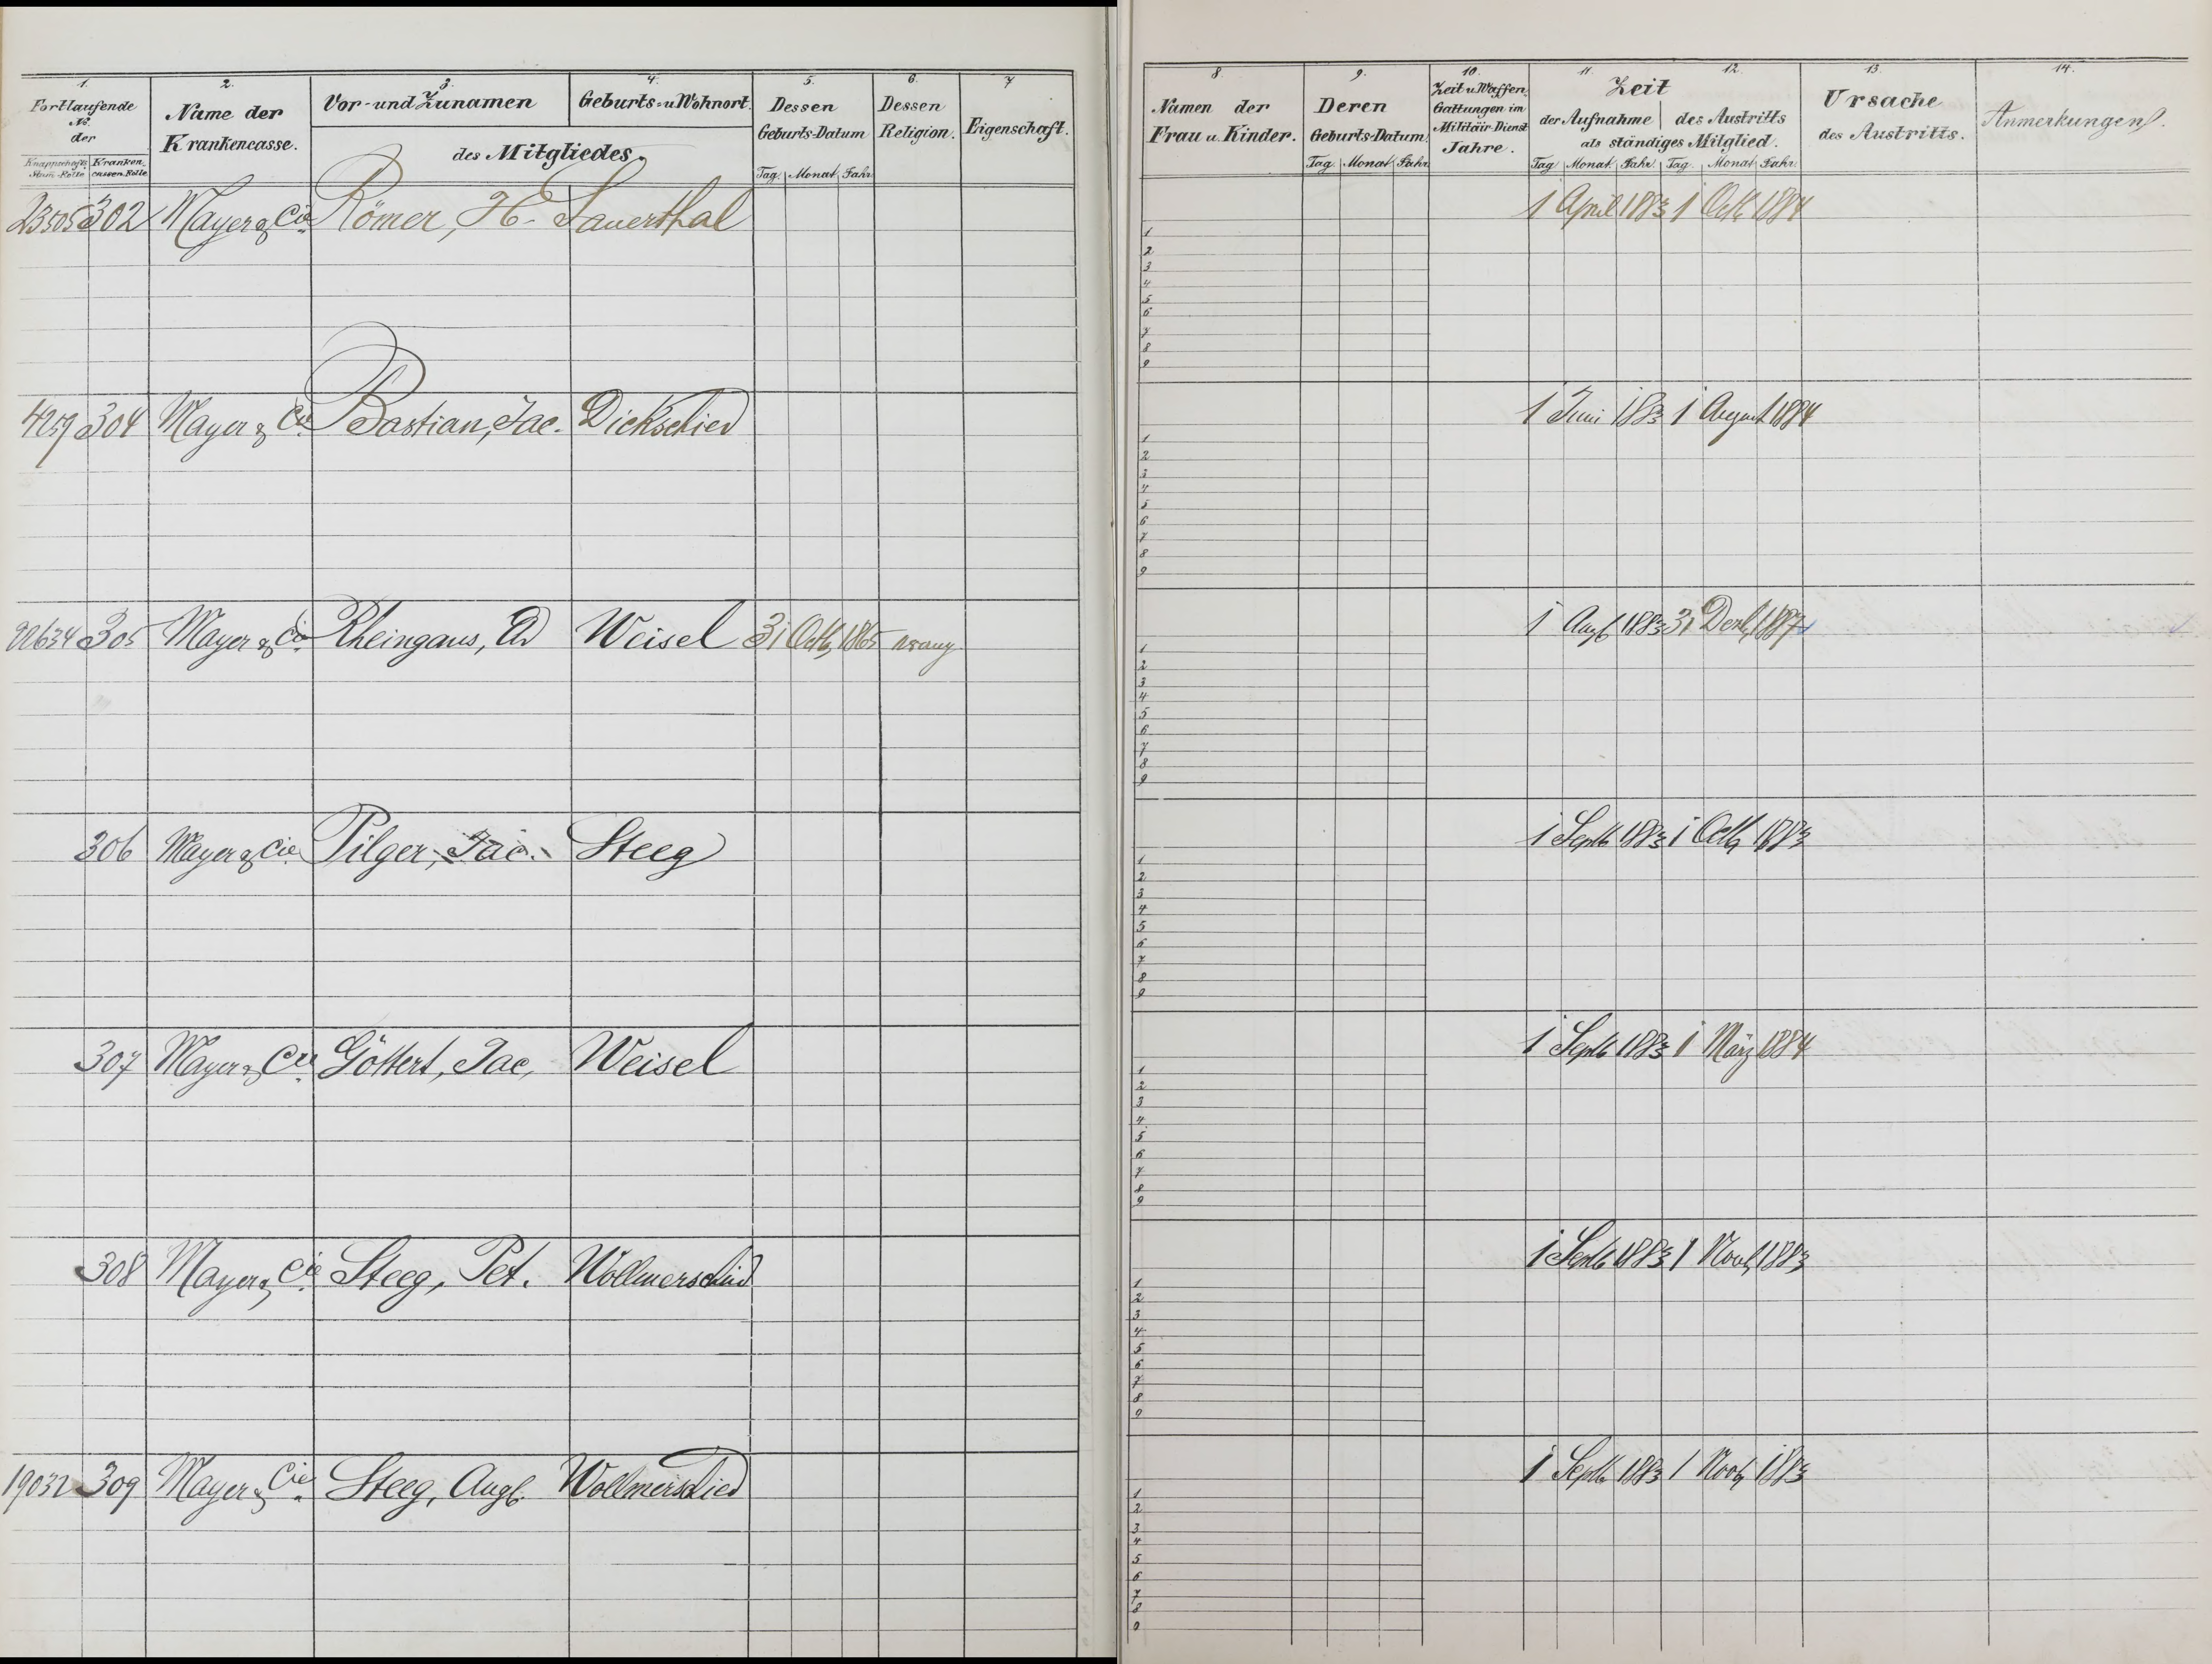 1. 2. 3. 4. 5. 6. 7
Fortlaufende No. der
Knappschafts Stam-Rolle Kranken cassen-Rolle
Name der Krankencasse.
Vor- und Zunamen Geburts- u Wohnort.
des Mitgliedes.
Dessen Geburts-Datum
Tag. Monat. Jahr.
Dessen Religion.
Eigenschaft.
23505 302 Mayer & Cie Römer, H. Sauerthal
4259 304 Mayer & Cie Bastian, Jac. Dickschied
305 Mayer & Cie Rheingans, Weisel 31 Octb 1865 evang
306 Mayer & Cie Pilger, Jac. Steeg
307 Mayer & Cie Göttert, Jac. Weisel
308 Mayer & Cie Steeg, Pet. Wollmerschied
19032 309 Mayer & Cie Steeg, Aug. Wollmerschied
8 9. 10. 11. 12. 13. 14.
Namen der Frau u. Kinder.
Deren Geburts-Datum
Tag. Monat. Jahr
Zeit u. Waffen Gattungen im Militair-Dienst Jahre.
Zeit
der Aufnahme des Austritts
als ständiges Mitglied.
Tag Monat Jahr Tag. Monat Jahr.
Ursache des Austritts.
Anmerkungen.
1 April 1883 1 Octb 1884
1
2
3
4
5
6
7
8
9
1 Juni 1883 1 August 1884
1
2
3
4
5
6
7
8
9
1 Augt 1883 31 Dezb 1887
1
2
3
4
5
6
7
8
9
1 Septb 1883 1 Octb 1883
1
2
3
4
5
6
7
8
9
1 Septb 1883 1 März 1884
1
2
3
4
5
6
7
8
9
1 Septb 1883 1 Novb 1883
1
2
3
4
5
6
7
8
9
1 Septb 1883 1 Novb 1883
1
2
3
4
5
6
7
8
9